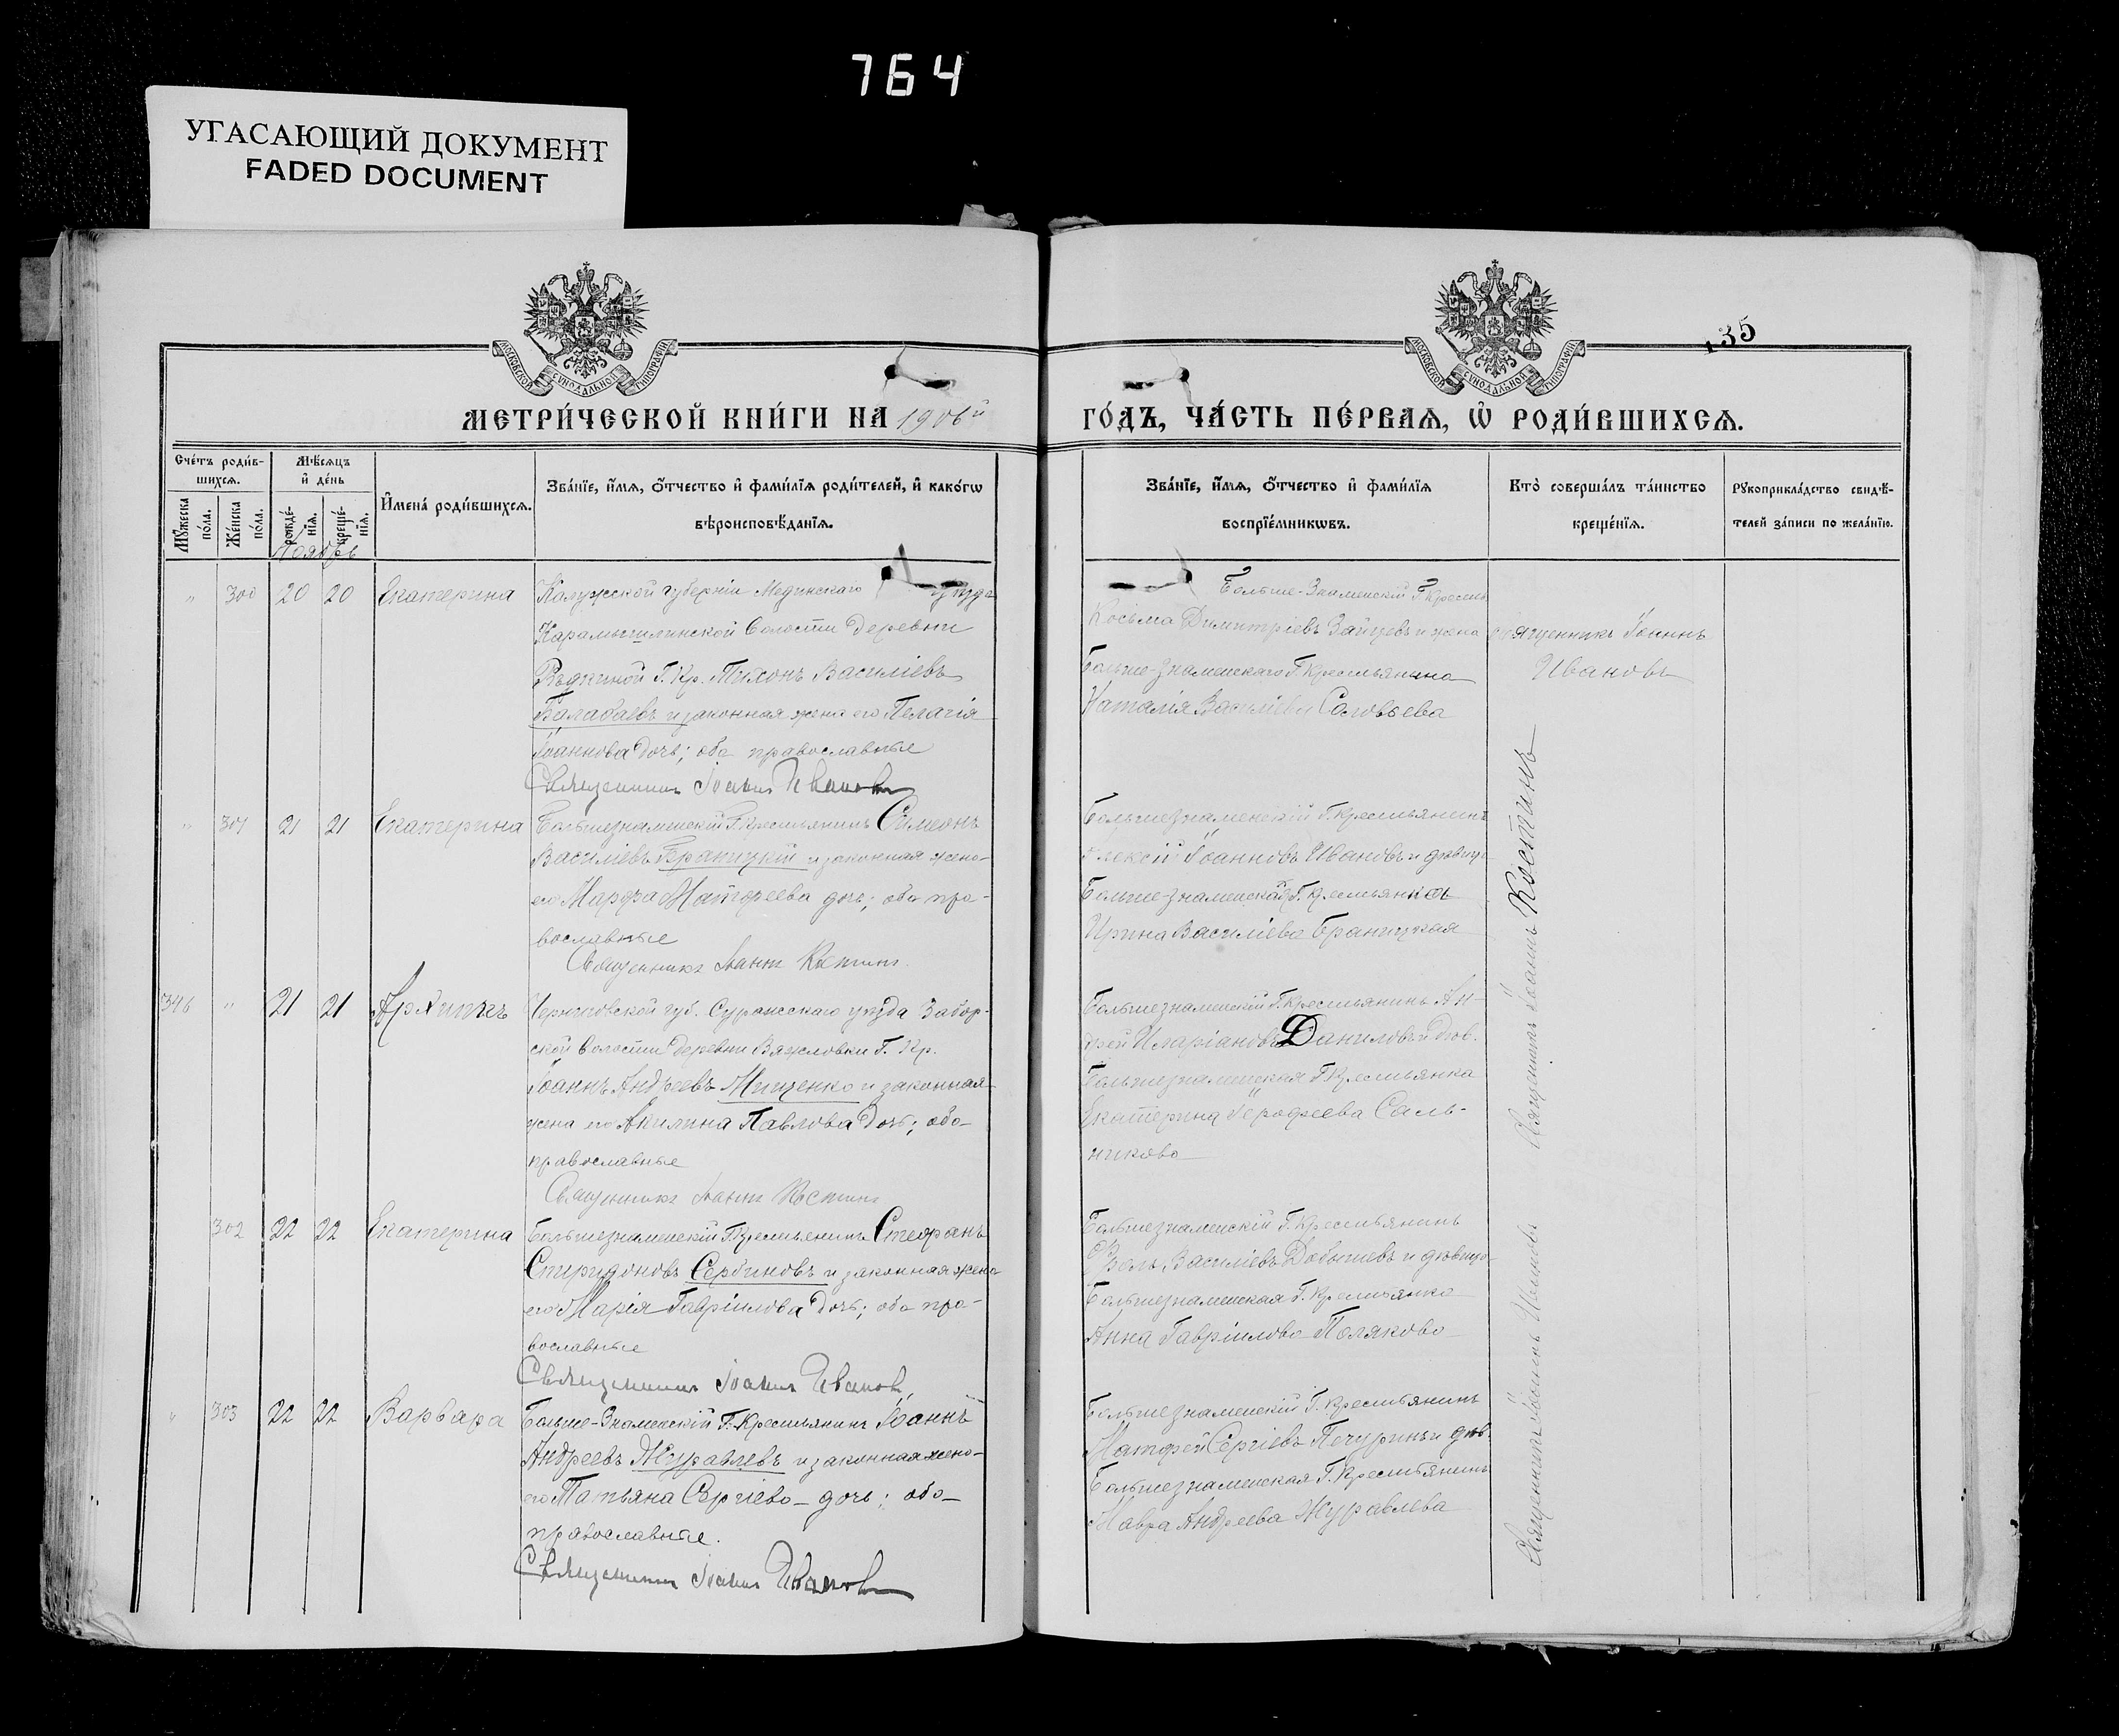 764
УГАСАЮЩИЙ ДОКУМЕНТ
FADED DOCUMENT
135
МОСКОВСКОЙ СѴНОДАЛЬНОЙ ТИПОГРАФІИ
МОСКОВСКОЙ СѴНОДАЛЬНОЙ ТИПОГРАФІИ
МЕТРИ́ЧЕСКОЙ КНИ́ГИ НА 1906й
ГО́ДЪ, ЧА́СТЬ ПЕ́РВАѦ, Ѡ҆ РОДИ́ВШИХСѦ.
Сче́тъ роди́вшихсѧ.
Мꙋ́жеска по́ла.
Же́нска по́ла.
Мѣ́сѧцъ и҆ де́нь
рожде́нїѧ.
креще́нїѧ.
Ноябрь
И҆мена̀ роди́вшихсѧ.
Зва́нїе, и҆́мѧ, о҆́тчество и҆ фами́лїѧ роди́телей, и҆ како́гѡ
вѣроисповѣ́данїѧ.
Зва́нїе, и҆́мѧ, о҆́тчество и҆ фами́лїѧ
воспрїе́мникѡвъ.
Кто̀ соверша́лъ та́инство
креще́нїѧ.
Рꙋкоприкла́дство свидѣ́-
телей за́писи по жела́нїю.
" 300 20 20 Екатерина
Калужской губерніи Медынскаго уѣзда
волости деревни
Г. Кр. Тихонъ Василіевъ
Балабаевъ и законная жена его Пелагія
Іоаннова дочь; оба православные
Священникъ Іоаннъ Ивановъ
Больше-Знаменскій Г. Кресть
Косьма Димитріевъ Зайцевъ и жена
Больше-Знаменскаго Г. Крестьянина
Наталія Василіева Соловьева
Священникъ Іоаннъ
Ивановъ
" 301 21 21 Екатерина
Большезнаменскій Г. Крестьянинъ Симеонъ
Василіевъ Браницкій и законная жена
его Марфа Матфеева дочь; оба пра-
вославные
Священникъ Іоаннъ Костинъ
Большезнаменскій Г. Крестьянинъ
Алексій Іоанновъ Ивановъ и дѣвица
Больше-знаменская Г. Крестьянка
Ирина Василіева Браницкая
Священникъ Іоаннъ Костинъ
346 " 21 21 Архиппъ
Черниговской губ. Суражскаго уѣзда Забор-
ской волости деревни Вяжловки Г. Кр.
Іоаннъ Андреевъ Мищенко и законная
жена его Акилина Павлова дочь; оба
православные
Священникъ Іоаннъ Костинъ
Большезнаменскій Г. Крестьянинъ Ан-
дрей Иларіановъ Даниловъ и дѣв.
Большезнаменская Г. Крестьянка
Екатерина Іерофеева Саль-
никова
302 22 22 Екатерина
Большезнаменскій Г. Крестьянинъ Стефанъ
Спиридоновъ Сербиновъ и законная жена
его Марія Гавріилова дочь; оба пра-
вославные
Священникъ Іоаннъ Ивановъ
Большезнаменскій Г. Крестьянинъ
Василіевъ и дѣвица
Большезнаменская Г. Крестьянка
Анна Гавріилова Полякова
Священникъ Іоаннъ Ивановъ
" 303 22 22 Варвара
Больше-Знаменскій Г. Крестьянинъ Іоаннъ
Андреевъ Журавлевъ и законная жена
его Татьяна Сергіева дочь; оба
православные.
Священникъ Іоаннъ Ивановъ
Большезнаменскій Г. Крестьянинъ
Матфей Сергіевъ Печуринъ и дѣв.
Большезнаменская Г. Крестьянинъ
Мавра Андреева Журавлева